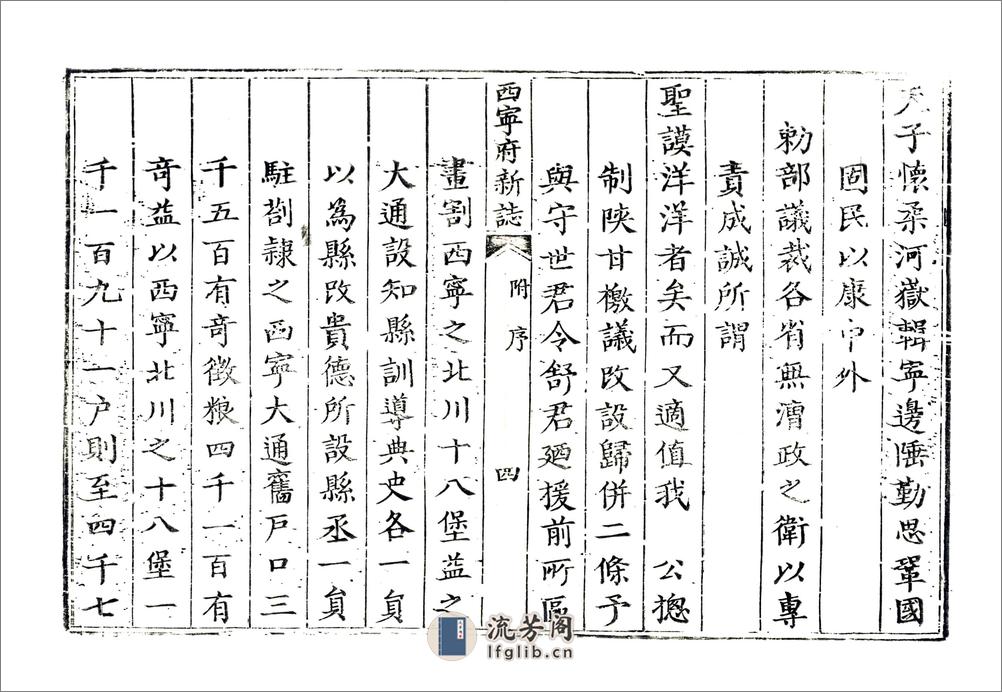 天子懷柔河嶽輯寧邊陲勤思鞏國
固民以康中外
勅部議裁各省無漕政之衛以專
責成誠所謂
聖謨洋洋者矣而又適值我 公摠
制陝甘檄議改設歸併二條予
與守世君令舒君廼援前所區
西寧府新誌 附序 四
畫割西寧之北川十八堡益之
大通設知縣訓導典史各一員
以為縣改貴德所設縣丞一員
駐劄隷之西寧大通舊戶口三
千五百有竒徵粮四千一百有
竒益以西寧北川之十八堡一
千一百九十一戶則至四千七
流芳阁
lfglib.cn